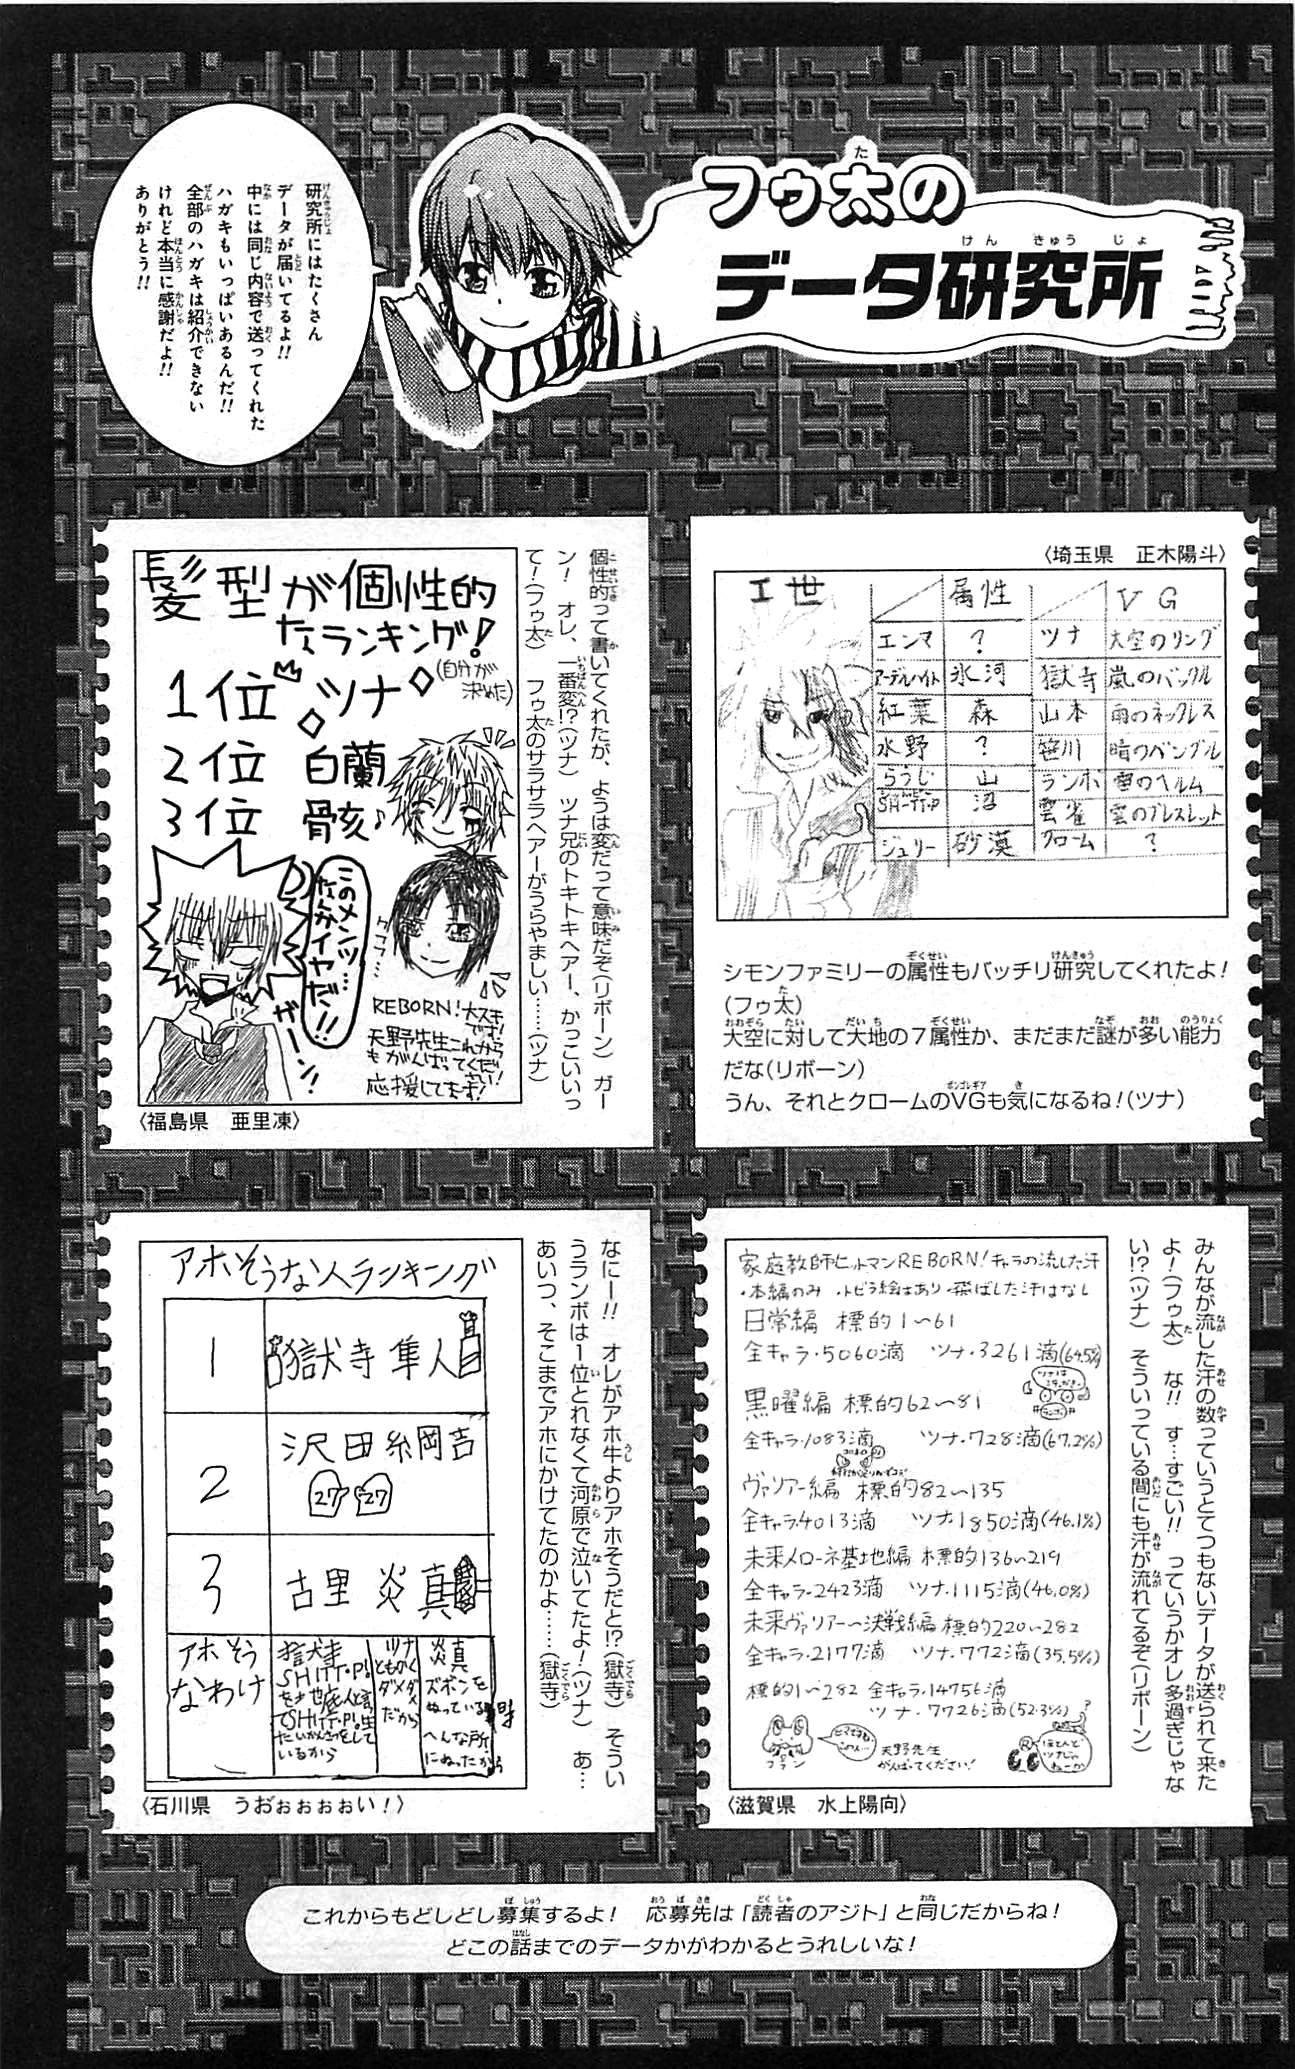 フゥ太の
データ研究所
研究所にはたくさん
データが届いてるよ!!
中には同じ内容で送ってくれた
ハガキもいっぱいあるんだ!!
全部のハガキは紹介できない
けれど本当に感謝だよ!!
ありがとう!!
〈埼玉県　正木陽斗〉
I世
属性
VG
エンマ ? ツナ 大空のリング
アーデルハイト 氷河 獄寺 嵐のバックル
紅葉 森 山本 雨のネックレス
水野 ? 笹川 晴のバングル
らうじ 山 ランボ 雷のヘルム
SHITT・P 沼 雲雀 雲のブレスレット
ジュリー 砂漠 クローム ?
シモンファミリーの属性もバッチリ研究してくれたよ!
(フゥ太)
大空に対して大地の7属性か、まだまだ謎が多い能力
だな(リボーン)
うん、それとクロームのVGも気になるね!(ツナ)
個性的って書いてくれたが、ようは変だって意味だぞ(リボーン)　ガー
ン!　オレ、一番変!?(ツナ)　ツナ兄のトキトキヘアー、かっこいいっ
て!(フゥ太)　フゥ太のサラサラヘアーがうらやましい……(ツナ)
髪型が個性的
なランキング!
(自分が
決めた)
1位 ツナ
2位 白蘭
3位 骸♪
このメンツ…
なんかイヤだ!!
ガーン!
REBORN!大スキ
です!
天野先生これから
もがんばってくだ
さい!
応援してます!
〈福島県　亜里凍〉
みんなが流した汗の数っていうとてつもないデータが送られて来た
よ!(フゥ太)　な!!　す…すごい!!　っていうかオレ多過ぎじゃな
い!?(ツナ)　そういっている間にも汗が流れてるぞ(リボーン)
家庭教師ヒットマンREBORN!キャラの流した汗
・本編のみ ・トビラ絵はあり ・飛ばした汗はなし
日常編 標的1〜61
全キャラ・5060滴 ツナ・3261滴(64.5%)
黒曜編 標的62〜81
全キャラ・1083滴 ツナ・728滴(67.2%)
ヴァリアー編 標的82〜135
全キャラ・4013滴 ツナ・1850滴(46.1%)
未来メローネ基地編 標的136〜219
全キャラ・2423滴 ツナ・1115滴(46.0%)
未来ヴァリアー〜決戦編 標的220〜282
全キャラ・2177滴 ツナ・772滴(35.5%)
標的1〜282 全キャラ・14756滴
ツナ・7726滴(52.3%)
フラン
天野先生
がんばってください!
ほとんど
ツナじゃ
ねーか
〈滋賀県　水上陽向〉
なにー!!　オレがアホ牛よりアホそうだと!?(獄寺)　そうい
うランボは1位とれなくて河原で泣いてたよ!(ツナ)　あ…
あいつ、そこまでアホにかけてたのかよ……(獄寺)
アホそうな人ランキング
1 獄寺隼人
2 沢田綱吉
27 27
3 古里炎真
アホそう
なわけ
獄寺
SHITT・P!
を地底人と言っ
てSHITT・P!生
たいかんさつをして
いるから
ツナ
とものく
ダメダメ
だから
炎真
ズボンを
ぬっている時
へんな所
にぬったから
〈石川県　うおぉぉぉぉい!〉
これからもどしどし募集するよ!　応募先は「読者のアジト」と同じだからね!
どこの話までのデータかがわかるとうれしいな!